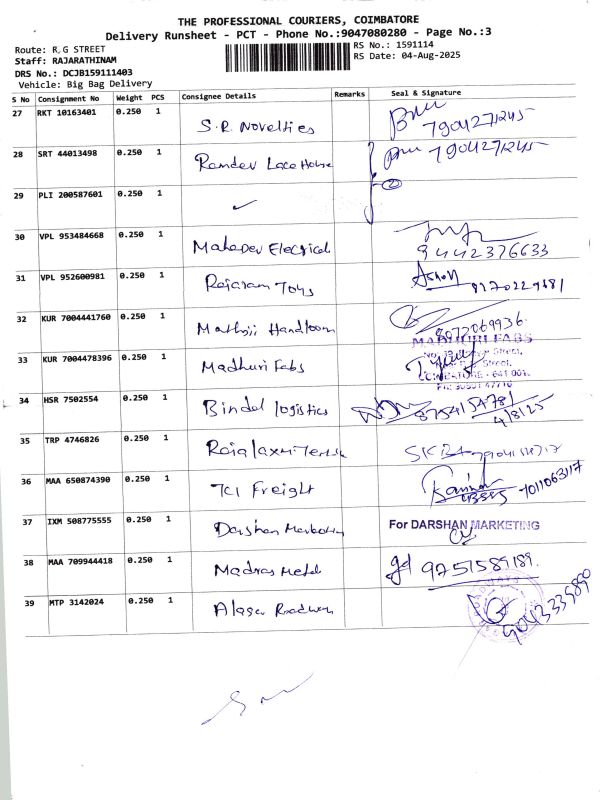 THE PROFESSIONAL COURIERS, COIMBATORE
Delivery Runsheet - PCT - Phone No.:9047080280 - Page No.:3
Route: R,G STREET RS No.: 1591114
Staff: RAJARATHINAM RS Date: 04-Aug-2025
DRS No.: DCJB159111403
Vehicle: Big Bag Delivery
S No Consignment No Weight PCS Consignee Details Remarks Seal & Signature
27 RKT 10163401 0.250 1 S.R. Novelties 7904271245
28 SRT 44013498 0.250 1 Ramdev Lace House 7904271245
29 PLI 200587601 0.250 1 ✓ 2
30 VPL 953484668 0.250 1 Mahadev Electrical 9442376633
31 VPL 952600981 0.250 1 Rajaram Toys Ashok
32 KUR 7004441760 0.250 1 Handloom 8072069936
33 KUR 7004478396 0.250 1 Madhuri Fabs MADHURI FABS
Street,
COIMBATORE - 641 001.
34 HSR 7502554 0.250 1 Bindal logistics 8754154781
4/8/25
35 TRP 4746826 0.250 1 Rajalaxmi
36 MAA 650874390 0.250 1 TCI Freight 7011063117
37 IXM 508775555 0.250 1 Darshan Marketing For DARSHAN MARKETING
38 MAA 709944418 0.250 1 Madras Metal 9751589189.
39 MTP 3142024 0.250 1 Alagar Roadways